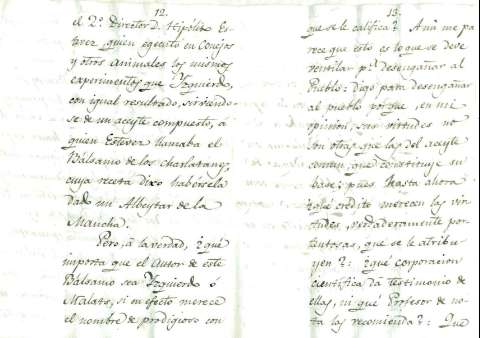 12.
el 2.º Director D. Hipólito Es-
tevez, quien egecutó en Conejos
y otros animales los mismos
experimentos que Yzquierdo,
con igual resultado, sirviendo-
se de un aceyte compuesto, á
quien Estevez llamaba el
Bálsamo de los charlatanes,
cuya receta dixo habersela
dado un Albeytar de la
Mancha.
Pero, á la verdad, ¿que
importa que el Autor de este
Bálsamo sea Yzquierdo ó
Malats, si en efecto merece
el nombre de prodigioso con
13.
que se le califica? A mi me pa-
rece que esto es lo que se debe
ventilar p.ª desengañar al
Pueblo: Digo para desengañar
al pueblo porque, en mi
opinion, sus virtudes no
son otras que las del aceyte
comun, que constituye su
base; pues hasta ahora
¿que credito merecen las vir-
tudes, verdaderamente por-
tentosas, que se le atribu-
yen?: ¿que corporacion
cientifica dá testimonio de
ellas, ni que Profesor de no-
ta las recomienda?: Que